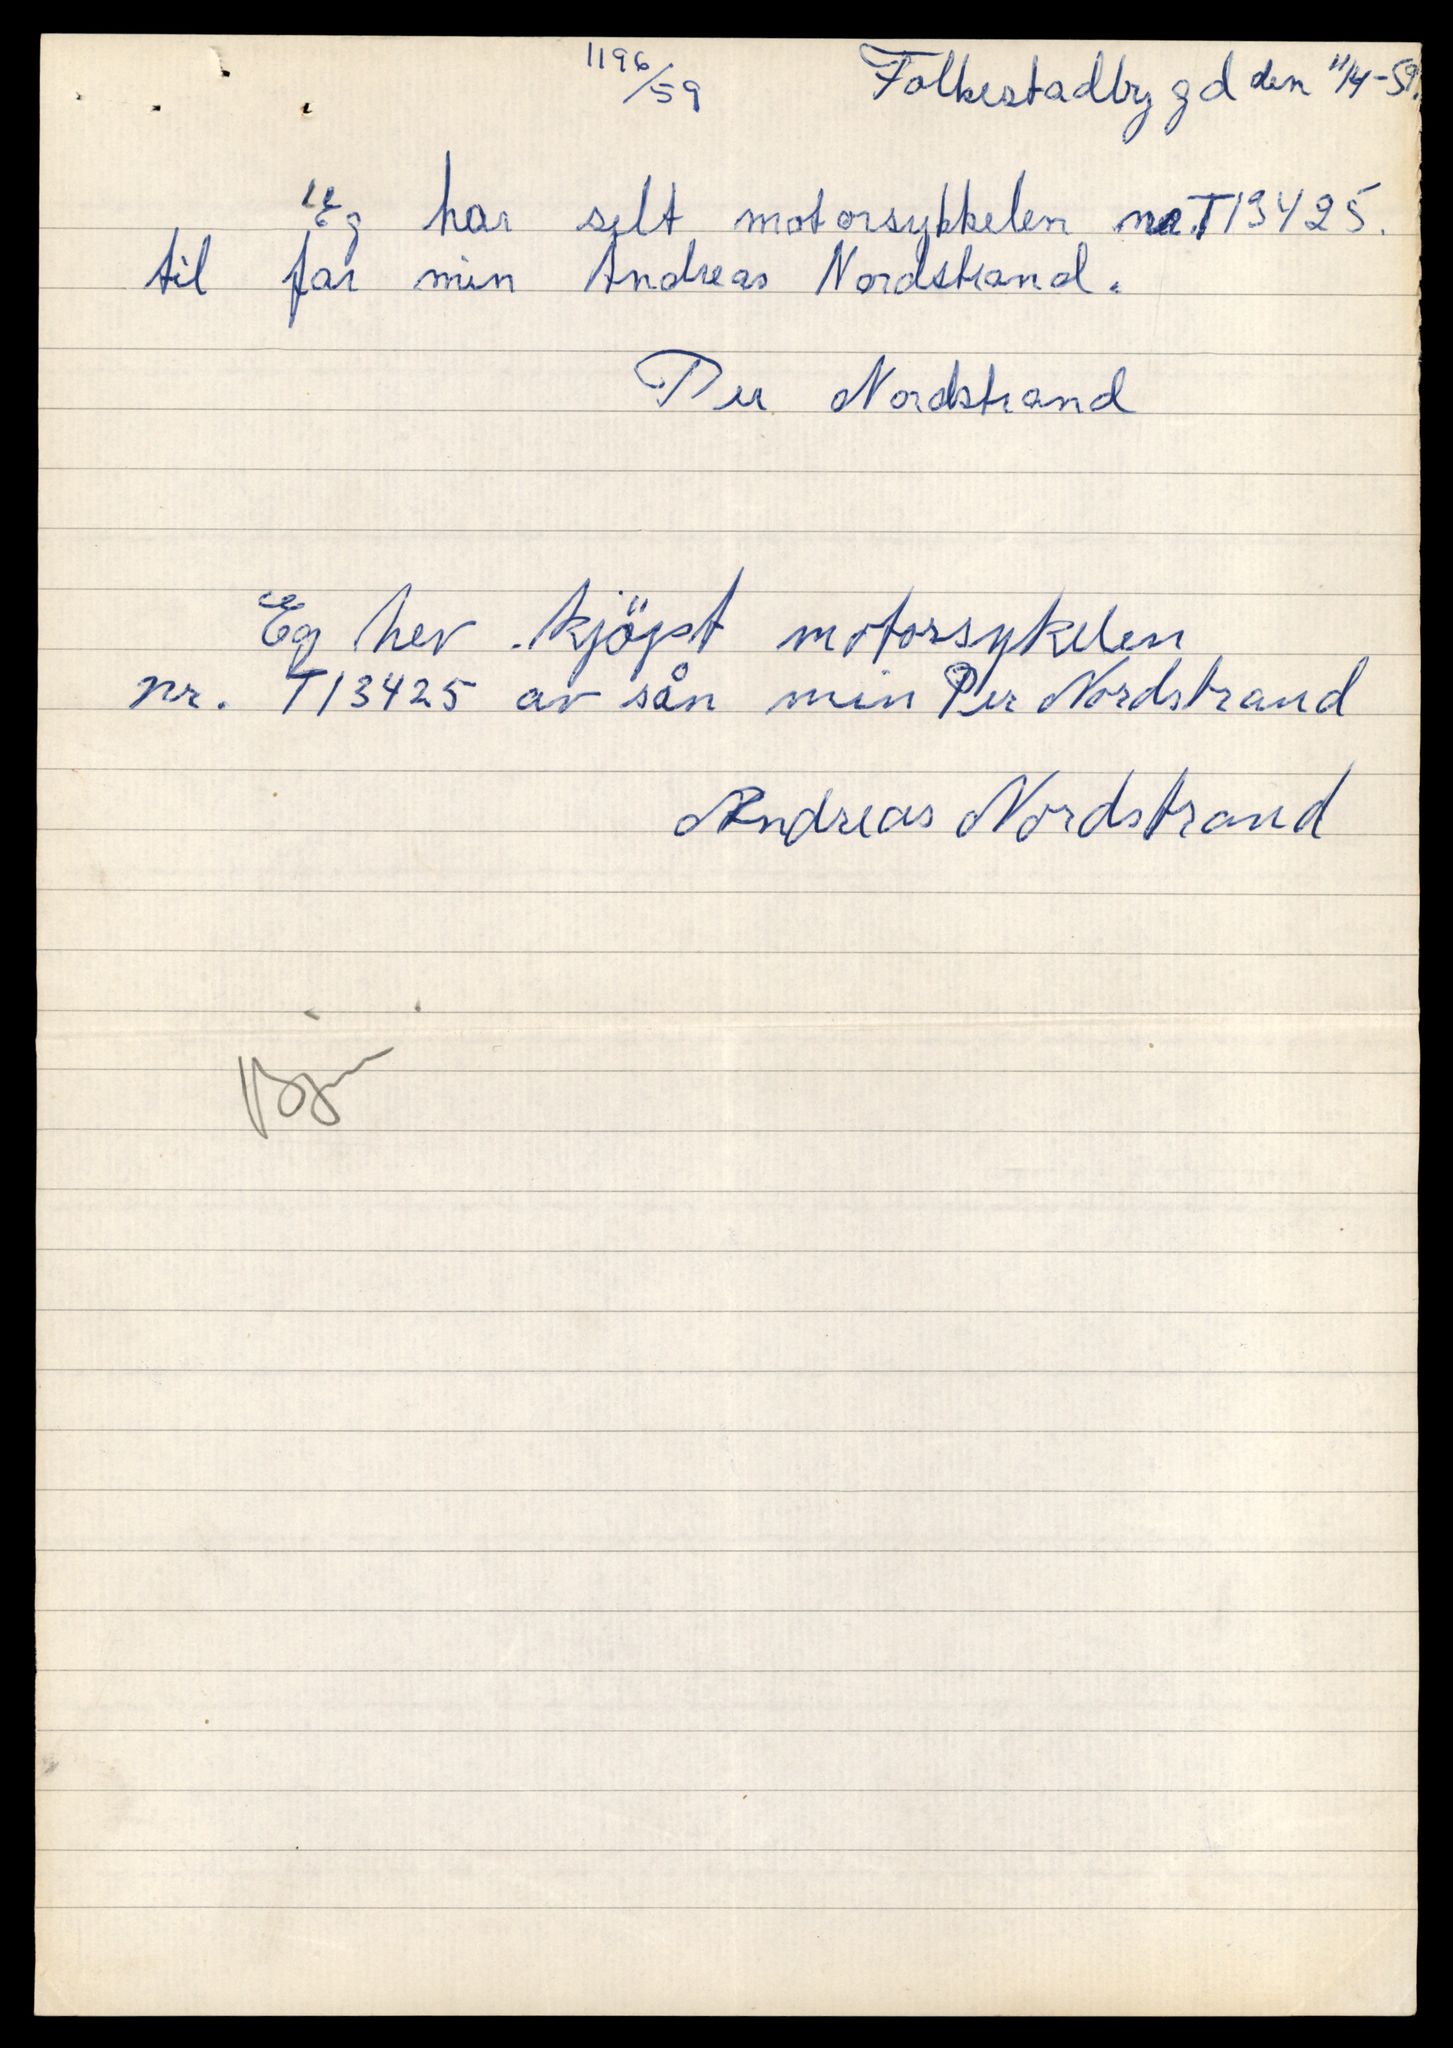 1196/59
Folkestadbygd den 11/4-59.
Eg har selt motorsykkelen nr. T13425.
til far min Andreas Nordstrand.
Per Nordstrand
Eg hev kjöpt motorsykelen
nr. T13425 av sån min Per Nordstrand
Andreas Nordstrand